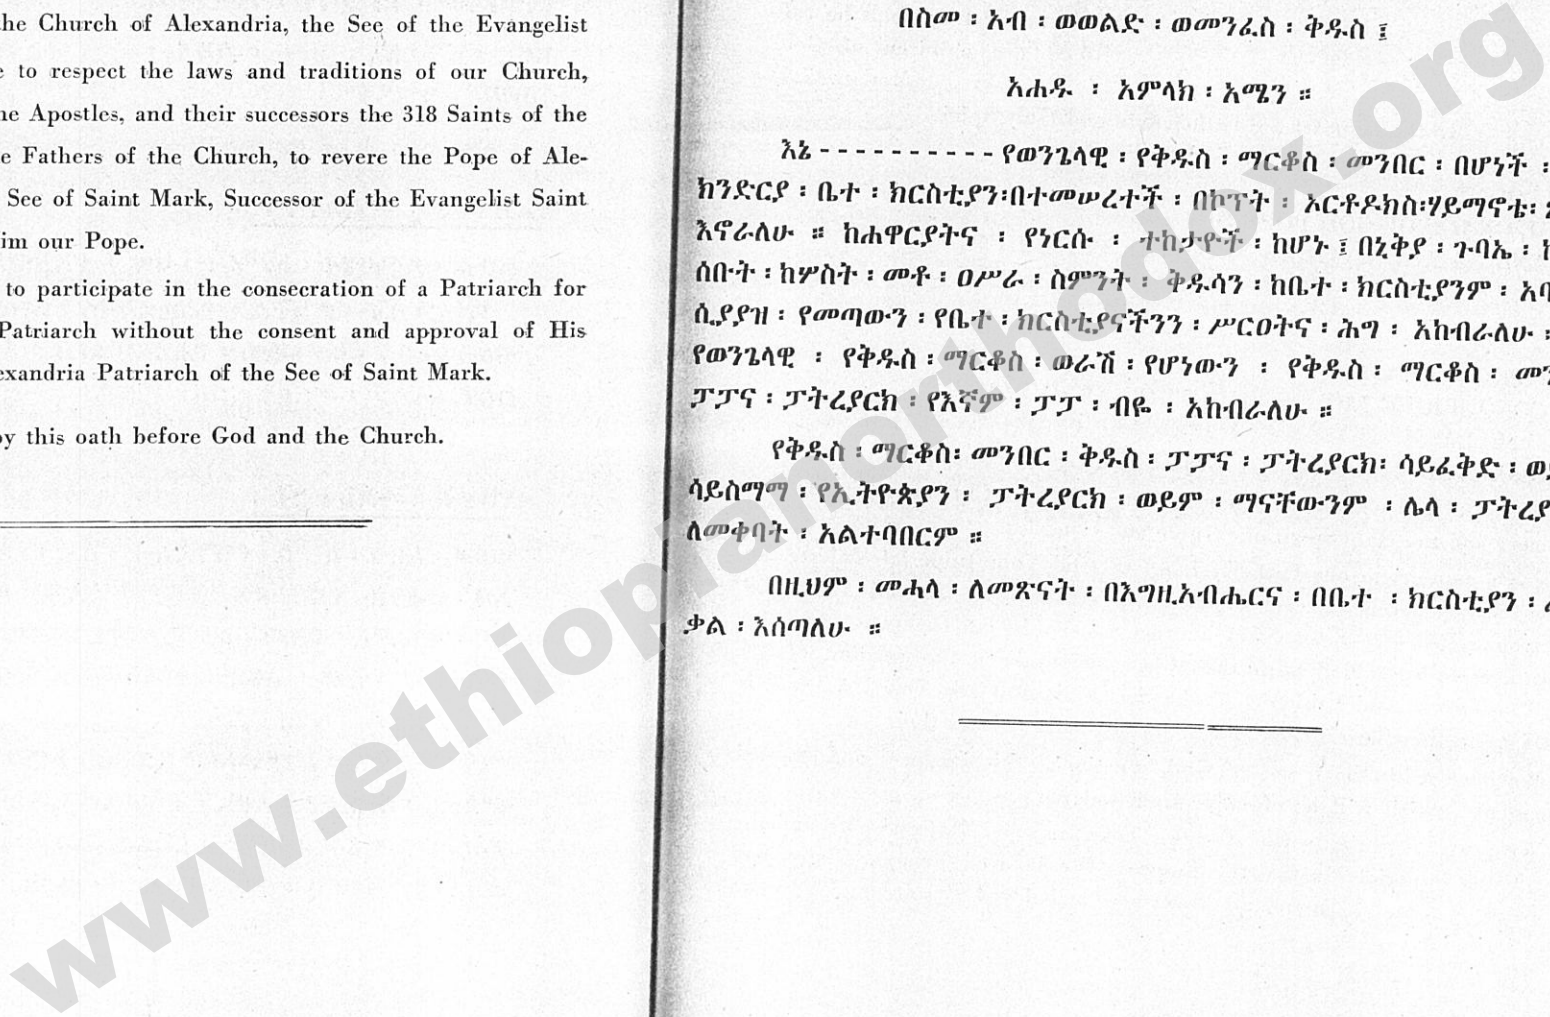 the Church of Alexandria, the See of the Evangelist
to respect the laws and traditions of our Church,
Apostles, and their successors the 318 Saints of the
Fathers of the Church, to revere the Pope of Ale-
See of Saint Mark, Successor of the Evangelist Saint
our Pope.
to participate in the consecration of a Patriarch for
Patriarch without the consent and approval of His
Patriarch of the See of Saint Mark.
this oath before God and the Church.
በስመ ፡ አብ ፡ ወወልድ ፡ ወመንፈስ ፡ ቅዱስ ፤
አሐዱ ፡ አምላክ ፡ አሜን ።
እኔ - - - - - - - - - - የወንጌላዊ ፡ የቅዱስ ፡ ማርቆስ ፡ መንበር ፡ በሆነች ፡
ክንድርያ ፡ ቤተ ፡ ክርስቲያን፡በተመሠረተች ፡ በኮፕት ፡ ኦርቶዶክስ፡ሃይማኖቴ፡
እኖራለሁ ። ከሐዋርያትና ፡ የነርሱ ፡ ተከታዮች ፡ ከሆኑ ፤ በኒቅያ ፡ ጉባኤ ፡
ሰቡት ፡ ከሦስት ፡ መቶ ፡ ዐሥራ ፡ ስምንት ፡ ቅዱሳን ፡ ከቤተ ፡ ክርስቲያንም ፡
ሲያያዝ ፡ የመጣውን ፡ የቤተ ፡ ክርስቲያናችንን ፡ ሥርዐትና ፡ ሕግ ፡ አከብራለሁ ።
የወንጌላዊ ፡ የቅዱስ ፡ ማርቆስ ፡ ወራሽ ፡ የሆነውን ፡ የቅዱስ ፡ ማርቆስ ፡
ፓፓና ፡ ፓትረያርክ ፡ የእኛም ፡ ፓፓ ፡ ብዬ ፡ አከብራለሁ ።
የቅዱስ ፡ ማርቆስ፡ መንበር ፡ ቅዱስ ፡ ፓፓና ፡ ፓትረያርክ፡ ሳይፈቅድ ፡
ሳይስማማ ፡ የኢትዮጵያን ፡ ፓትረያርክ ፡ ወይም ፡ ማናቸውንም ፡ ሌላ ፡ ፓትረያ
ለመቀባት ፡ አልተባበርም ።
በዚህም ፡ መሐላ ፡ ለመጽናት ፡ በእግዚአብሔርና ፡ በቤተ ፡ ክርስቲያን ፡
ቃል ፡ እሰጣለሁ ።
www.ethiopianorthodox.org